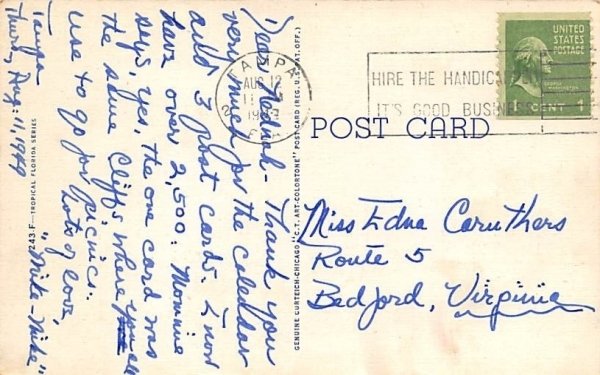 Tampa
Thurs, Aug. 11, 1949
Dear Neenah- Thank you
very much for the calendar
and 3 post cards. I now
have over 2,500. Mommie
says, yes, the one card was
the same Cliffs where you all
use to go for picnics.
Lots of love,
"Mike-Mike"
4243 F—TROPICAL FLORIDA SERIES
GENUINE CURTEICH-CHICAGO "C.T. ART-COLORTONE" POST CARD (REG. U.S. PAT. OFF.)
TAMPA
AUG 12
HIRE THE
IT'S GOOD BUSINESS
UNITED
STATES
POSTAGE
CENT 1
POST CARD
Miss Edna Caruthers
Route 5
Bedford, Virginia